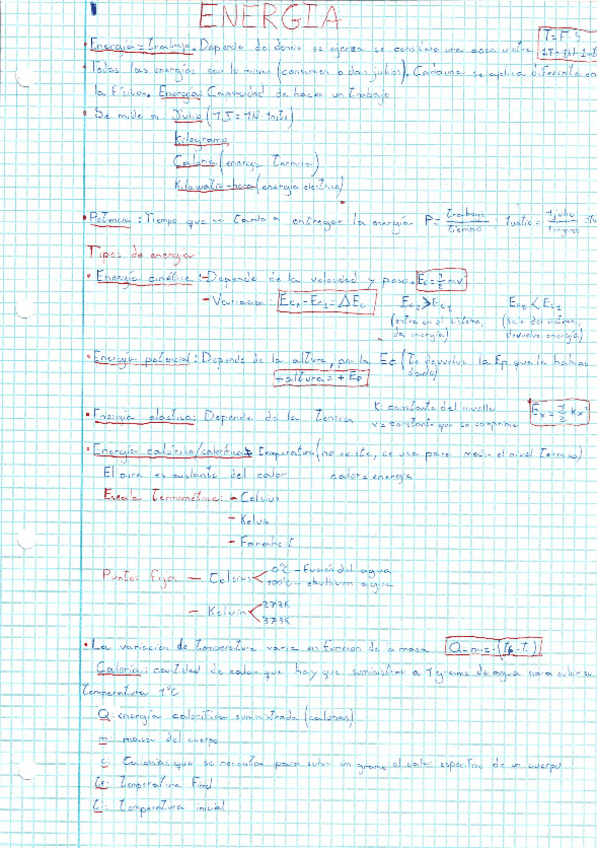 ENERGIA
• Energía = trabajo. Depende de donde se ejerza se considera una cosa u otra. T = F · S
• Todas las energías son lo mismo (consumen o dan julios). Cada una se aplica diferente en
la física. Energía: Capacidad de hacer un trabajo
• Se mide en Julio (1J = 1N · 1mts)
Kilogramo
Caloria (energia termica)
Kilowatio-hora (energia electrica)
• Potencia: Tiempo que se tarda en entregar la energía P = trabajo / tiempo ; 1 watio = 1 julio / 1 segundo
Tipos de energía
• Energía cinética: - Depende de la velocidad y peso. Ec = 1/2 mv²
- Variacion: Ec₂ - Ec₁ = ΔEc Ec₂ > Ec₁ Ec₂ < Ec₁
(entra en el sistema, (Sale del sistema,
da energía) devuelve energía)
• Energía potencial: Depende de la altura, por la Ec (Te devuelve la Ep que le habías
dado)
+ altura = + Ep
• Energía elastica: Depende de la tension K: constante del muelle Ex = 1/2 Kx²
x = constante que se comprime
• Energía calórica/calorifica: Temperatura (no existe, se usa para medir el nivel termico)
El aire es aislante del calor calor = energía
Escala Termometrica: - Celsius
- Kelvin
- Farenheit
Puntos fijos - Celsius < 0ºC - Fusión del agua
100ºC - ebullicion agua
- Kelvin < 273K
373K
• La variación de temperatura varia en funcion de la masa
Caloría: cantidad de calor que hay que suministrar a 1 gramo de agua para subir su
temperatura 1ºC
Q: energía calorifica suministrada (calorias)
m: masa del cuerpo
c: Calorias que se necesitan para subir un gramo el calor especifico de un cuerpo
tf: temperatura Final
ti: temperatura inicial